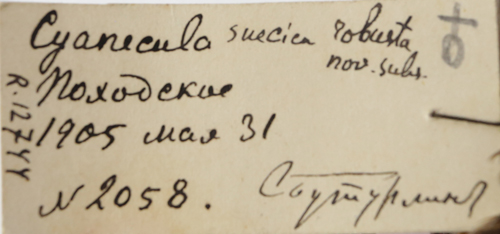 Cyanecula suecica robusta
nov. subs.
Походское
1905 мая 31
N 2058.
R.12744